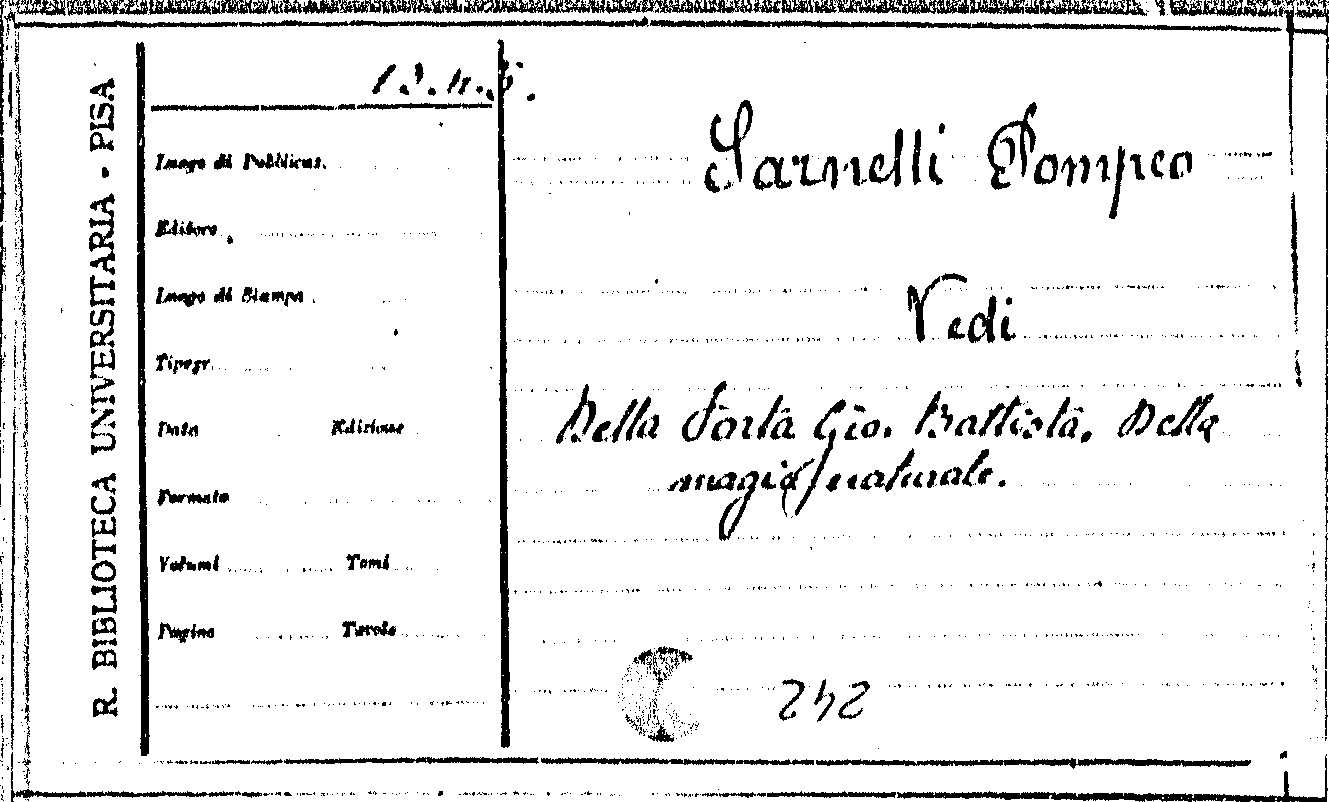 R. BIBLIOTECA UNIVERSITARIA - PISA
Luogo di Pubblicaz.
Editore
Luogo di Stampa
Tipogr.
Data Edizione
Formato
Volumi Tomi
Pagine Tavole
Sarnelli Pompeo
Vedi
Della Porta Gio. Battista. Della
magia naturale.
242